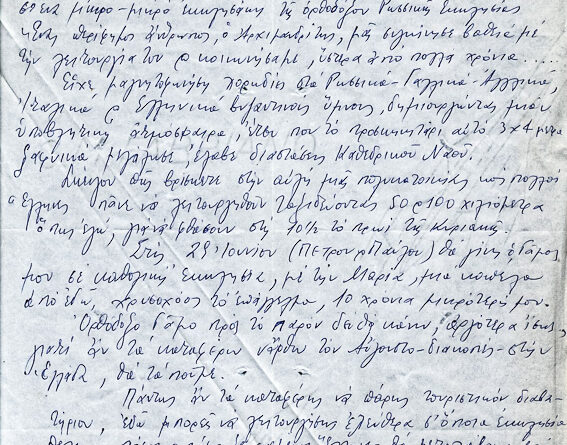 μικρο-μικρό εκκλησάκι της ορθόδοξου Ρωσικής Εκκλησίας
ένας περίφημος άνθρωπος, ο Αρχιμανδρίτης, μας συγκίνησε βαθιά με
την λειτουργία του & κοινωνήσαμε, ύστερα από πολλά χρόνια.....
Είχε μαγνητοφωνήσει χορωδίες στα Ρωσσικά-Γαλλικά-Αγγλικά,
Ιταλικά & Ελληνικά βυζαντινούς ύμνους, δημιουργώντας μιαν
υποβλητική ατμόσφαιρα, έτσι που το προσκυνητάρι αυτό 3x4 μέτρα
ξαφνικά μεγάλωσε, έλαβε διαστάσεις Καθεδρικού Ναού.
πως βρίσκεται στην αυλή μιας πολυκατοικίας και πολλοί
Έλληνες πάνε να λειτουργηθούν ταξιδεύοντας 50 & 100 χιλιόμετρα
όπως εγώ, για να φθάσουν στις 10½ το πρωί της Κυριακής.
Στις 29 Ιουνίου (Πέτρου & Παύλου) θα γίνη ο Γάμος
μου σε καθολική Εκκλησία, με την Μαρία, μια κοπέλα
από εδώ, χρυσοχόος το επάγγελμα, 10 χρόνια μικρότερή μου.
Ορθόδοξο Γάμο προς το παρόν δεν θα κάνω, αργότερα ίσως,
γιατί αν τα καταφέρω νάρθω τον Αύγουστο-διακοπές-στην
Ελλάδα, θα τα πούμε.
Πάντως αν τα καταφέρης να πάρης τουριστικόν διαβα-
τήριον, εδώ μπορείς να λειτουργήσης ελεύθερα σ' όποια Εκκλησία